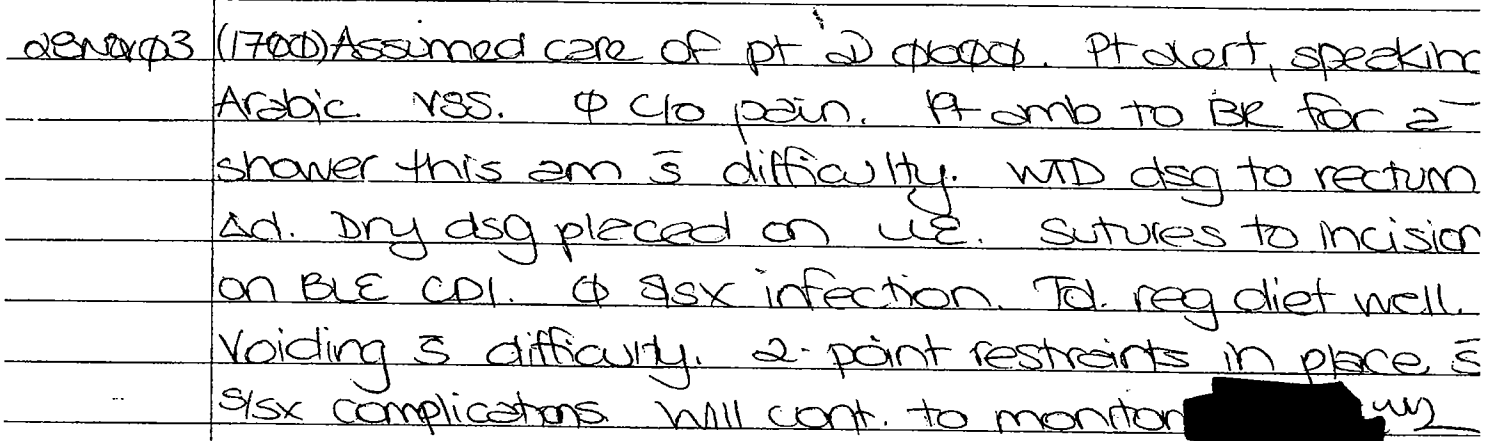 28Nov03 (1700) Assumed care of pt @ 0600. Pt alert, speaking
Arabic. VSS. ∅ c/o pain. Pt amb to BR for a
shower this am s̄ difficulty. WTD dsg to rectum
Δd. Dry dsg placed on LLE. Sutures to incision
on BLE CDI. ∅ s/sx infection. Td. reg diet well.
Voiding s̄ difficulty. 2-point restraints in place s̄
s/sx complications. Will cont. to monitor